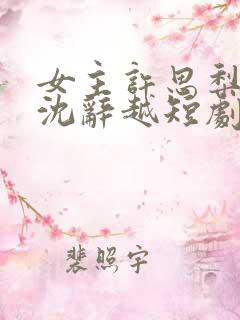 女主許思梨
沈辭越短劇
裴照宇